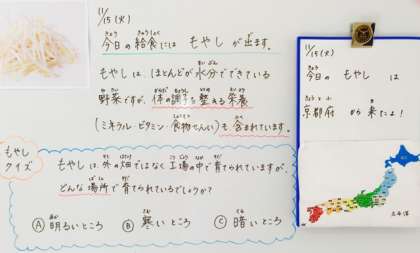 11/15(火)
今日の給食には もやし が出ます。
もやしは、ほとんどが水分でできている
野菜ですが、体の調子を整える栄養
(ミネラル・ビタミン・食物せんい)も含まれています。
もやし
クイズ
もやしは外の畑ではなく工場の中で育てられていますが、
どんな場所で育てられているでしょうか?
Ⓐ 明るいところ Ⓑ 寒いところ Ⓒ 暗いところ
11/15(火)
今日の もやし は
京都府 から来たよ!